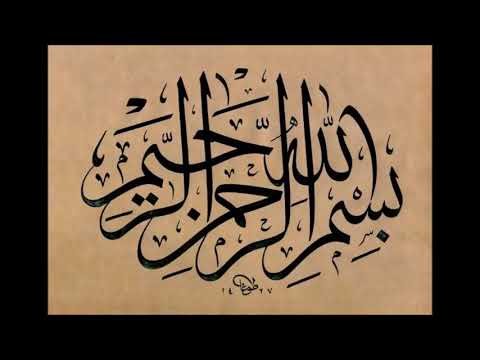 بِسْمِ اللهِ الرَّحمٰنِ الرَّحِيمِ
١٤٢٧